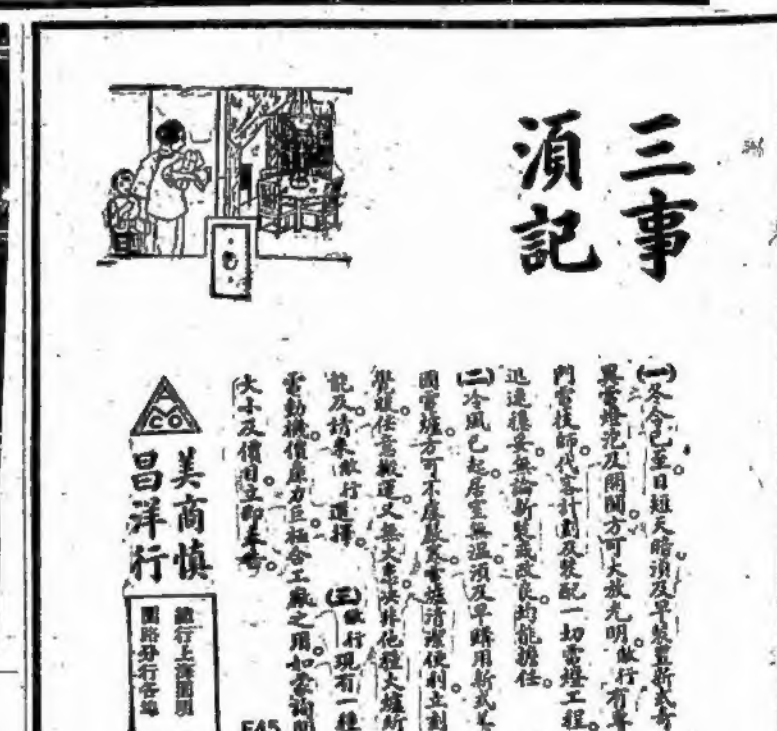 三事
須記
(一)冬令已至。日短天暗。須及早裝置新式奇
異電燈泡及開關。方可大放光明。敝行有專
門電技師代客計劃及裝配一切電燈工程。
迅速穩妥。無論新裝或改良。均能擔任。
(二)冷風已起。居室無溫。須及早購用新式美
國電爐。方可不慮嚴寒。電爐清潔便利。立刻
發暖。任意搬運。又無火患。決非他種火爐所
能及。請來敝行選擇。 (三)敝行現有一種
電動機。價廉力巨。極合工廠之用。如蒙詢問
大小及價目。立即奉告。
E45
AMCO
美商慎
昌洋行
總行上海圓明
園路分行各埠